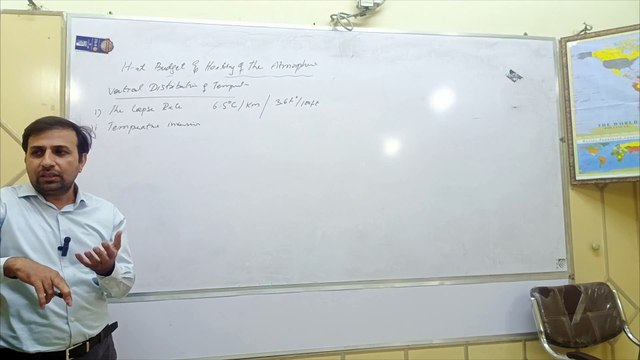 Heat Budget of Heating of The Atmosphere
Vertical Distribution of Temperat
1) The Lapse Rate 6.5°C/km / 3.6F°/1000ft
Temperature inversion
THE WORLD